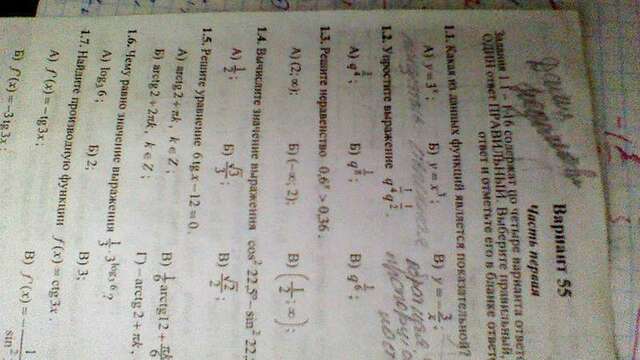 Вариант 55
Часть первая
Задания 1.1 – 1.16 содержат по четыре варианта ответ
ОДИН ответ ПРАВИЛЬНЫЙ. Выберите правильный
ответ и отметьте его в бланке ответо
1.1. Какая из данных функций является показательной?
А) y = 3ˣ; Б) y = x³; В) y =
1.2. Упростите выражение
А) Б) В)
1.3. Решите неравенство 0,6ˣ > 0,36.
А) (2; ∞); Б) (–∞; 2); В) (1/2; ∞);
1.4. Вычислите значение выражения cos² 22,5° – sin² 22,
А) 1/2; Б) √3/3; В) √2/2;
1.5. Решите уравнение 6 tg x – 12 = 0.
А) arctg 2 + πk, k ∈ Z; В) 1/6 arctg 12 + πk/6
Б) arctg 2 + 2πk, k ∈ Z; Г) – arctg 2 + πk,
1.6. Чему равно значение выражения
А) log₃ 6; Б) 2; В) 3;
1.7. Найдите производную функции f(x) = ctg 3x.
А) f′(x) = –tg 3x; В) f′(x) = –
Б) f′(x) = –3 tg 3x;